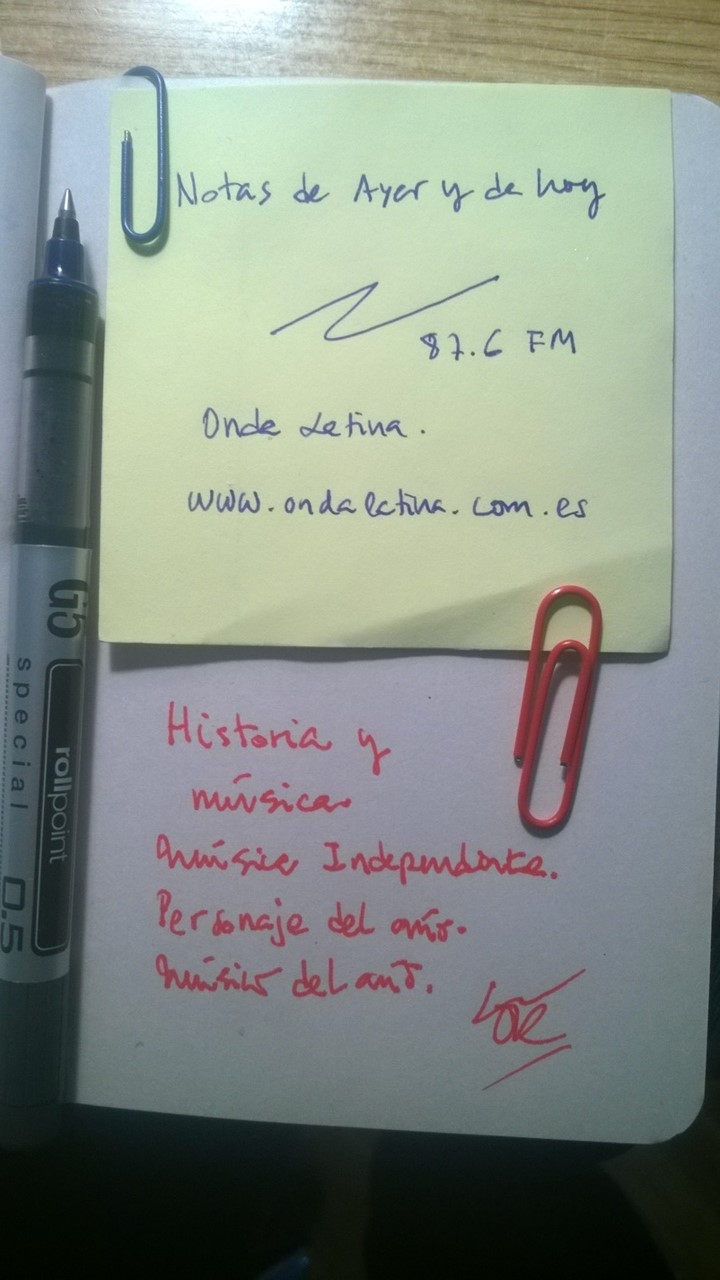 Notas de Ayer y de hoy
87.6 FM
Onda Latina.
www.ondalatina.com.es
Historia y
música
Música Independiente.
Personaje del año.
Músico del año.
G5
special
rollpoint
0.5